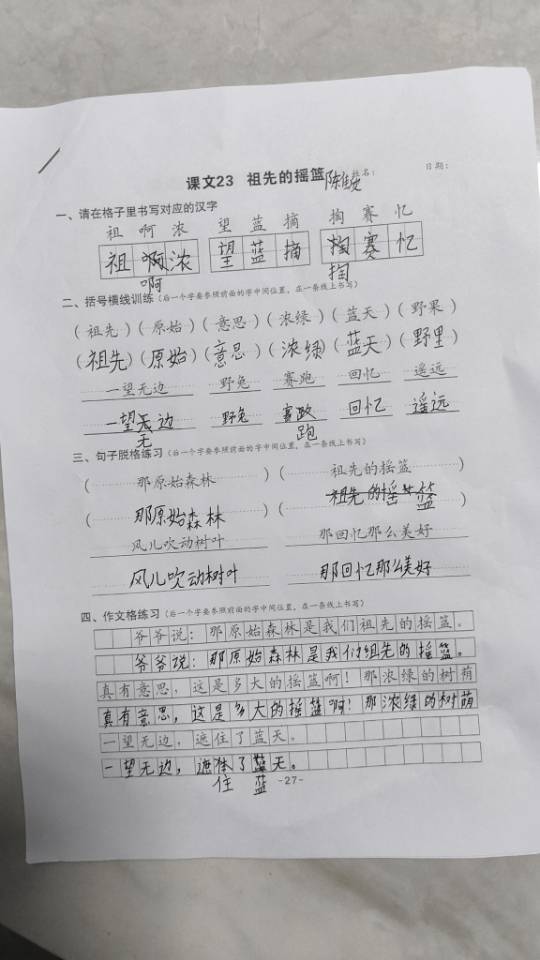 课文23 祖先的摇篮 姓名: 日期:
一、请在格子里书写对应的汉字
祖 啊 浓 望 蓝 摘 掏 赛 忆
祖 啊 浓 望 蓝 摘 掏 赛 忆
啊 掏
二、括号横线训练(后一个字要参照前面的字中间位置,在一条线上书写)
(祖先)(原始)(意思)(浓绿)(蓝天)(野果)
(祖先)(原始)(意思)(浓绿)(蓝天)(野里)
一望无边 野兔 赛跑 回忆 遥远
一望无边 野兔 赛跑 回忆 遥远
无 跑
三、句子脱格练习(后一个字要参照前面的字中间位置,在一条线上书写)
(那原始森林)(祖先的摇篮)
(那原始森林)(祖先的摇篮)
风儿吹动树叶 那回忆那么美好
风儿吹动树叶 那回忆那么美好
四、作文格练习(后一个字要参照前面的字中间位置,在一条线上书写)
爷爷说:那原始森林是我们祖先的摇篮。
爷爷说:那原始森林是我们组先的摇篮。
真有意思,这是多大的摇篮啊!那浓绿的树荫
真有意思,这是多大的摇篮啊!那浓绿的树荫
一望无边,遮住了蓝天。
一望无边,遮住了蓝天。
住 蓝
-27-